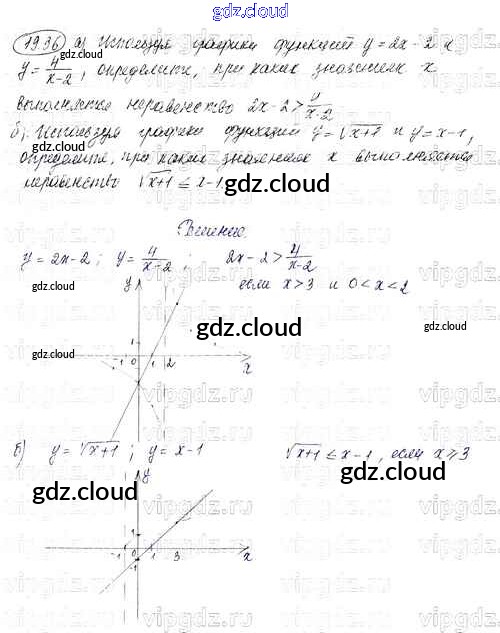 gdz.cloud
19.36 а) Используя графики функций y = 2x - 2 и
y = 4/(x-2), определите, при каких значениях x
выполняется неравенство 2x - 2 > 4/(x-2)
б) Используя графики функций y = √(x+1) и y = x - 1,
определите, при каких значениях x выполняется
неравенство √(x+1) ≤ x - 1
gdz.cloud
Решение.
y = 2x - 2 ; y = 4/(x-2) ; 2x - 2 > 4/(x-2)
если x > 3 и 0 < x < 2
y
1
-1 0 1 2 x
б) y = √(x+1) ; y = x - 1 √(x+1) ≤ x - 1, если x ⩾ 3
y
1
-1 0 1 3 x
-1
gdz.cloud
vipgdz.ru